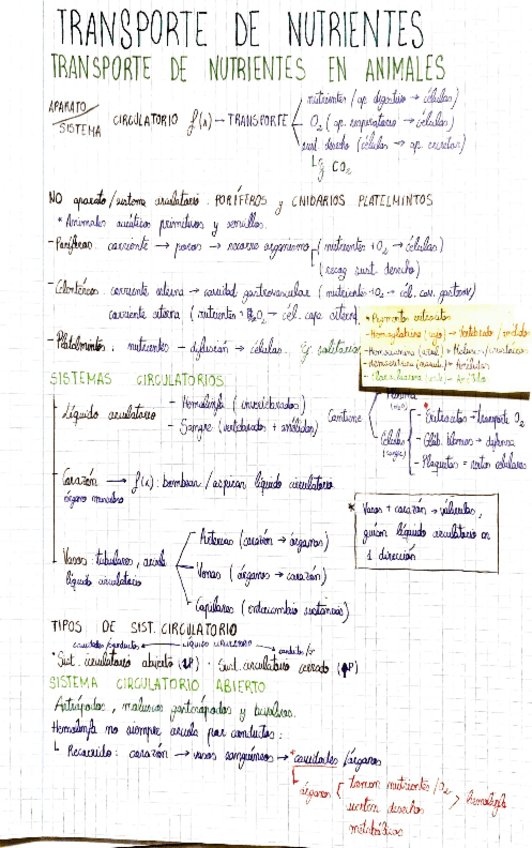 TRANSPORTE DE NUTRIENTES
TRANSPORTE DE NUTRIENTES EN ANIMALES
APARATO/SISTEMA CIRCULATORIO f(x) → TRANSPORTE
nutrientes (ap. digestivo → células)
O₂ (ap. respiratorio → células)
sust. desecho (células → ap. excretor)
CO₂
NO aparato/sistema circulatorio: PORÍFEROS y CNIDARIOS PLATELMINTOS
* Animales acuáticos primitivos y sencillos.
- Poríferos: corriente → poros → recorre organismo (nutrientes + O₂ → células)
(recog sust. desecho)
- Celentéreos: corriente externa → cavidad gastrovascular (nutrientes + O₂ → cél. cav. gastrov)
corriente externa (nutrientes + O₂ → cél. capa externa
- Platelmintos: nutrientes - difusión → células. Ej solitaria
* Pigmentos
- Hemoglobina (rojo) → Vertebrado /
- Hemocianina (azul) → Moluscos/crustáceos
→ Anélidos
→ Anélidos
SISTEMAS CIRCULATORIOS
Líquido circulatorio
- Hemolinfa (invertebrados)
- Sangre (vertebrados + anélidos)
Contiene
Plasma
Células
- Eritrocitos → transporte O₂
- Glób. blancos → defensa
- Plaquetas = restos celulares
Corazón → f(x): bombean/aspiran líquido circulatorio
órgano musculoso
* Vasos + corazón → válvulas,
guían líquido circulatorio en
1 dirección
Vasos: tubulares, circula
líquido circulatorio
Arterias (corazón → órganos)
Venas (órganos → corazón)
Capilares (intercambio sustancias)
TIPOS DE SIST. CIRCULATORIO
cavidades/conductos ← LÍQUIDO → conductos
* Sist. circulatorio abierto (↓P) - Sist. circulatorio cerrado (↑P)
SISTEMA CIRCULATORIO ABIERTO
Artrópodos, moluscos gasterópodos y bivalvos.
Hemolinfa no siempre circula por conductos:
Recorrido: corazón → vasos sanguíneos → *cavidades/órganos
órganos
toman nutrientes/O₂
desechos
metabólicos
hemolinfa